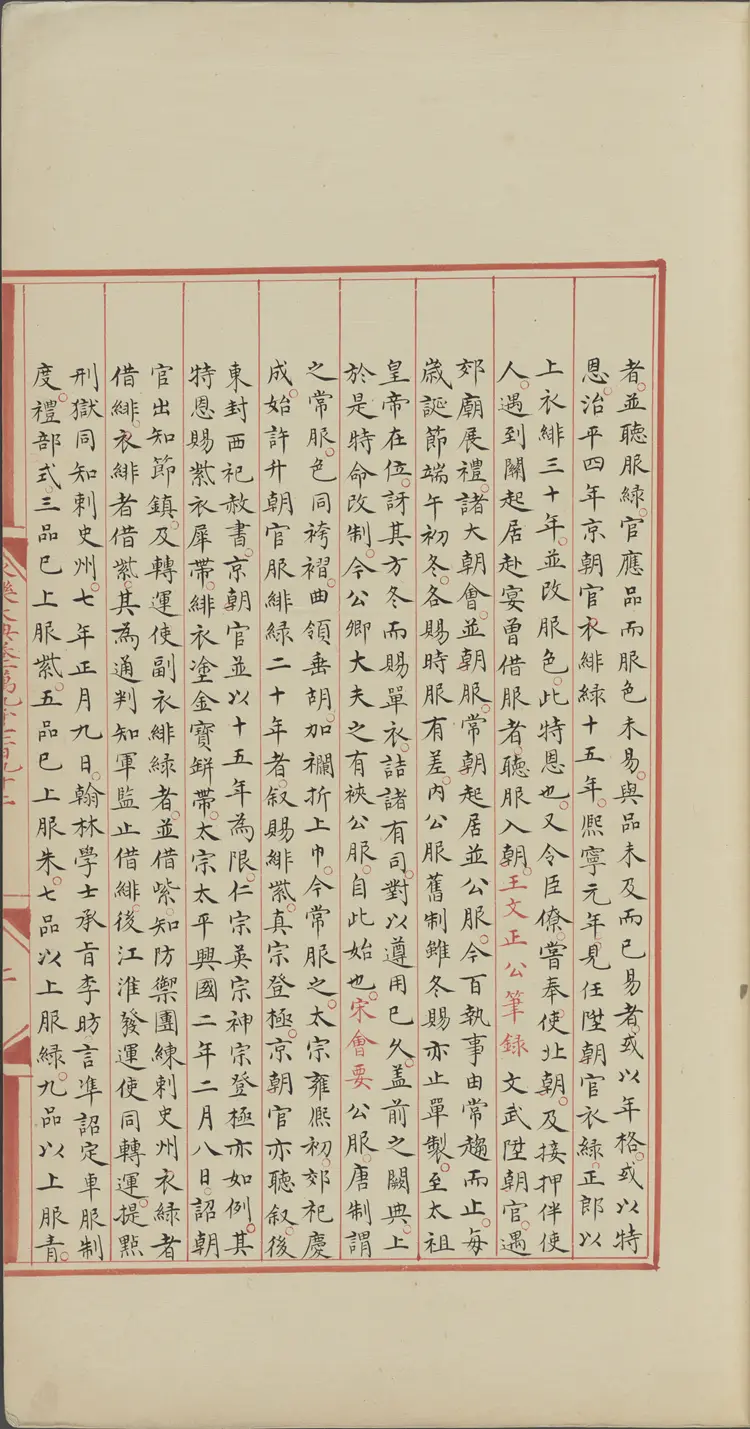 者。並聽服綠。官應品而服色未易。與品未及而已易者。或以年格。或以特
恩。治平四年京朝官衣緋綠十五年。熈寧元年。見任陞朝官衣綠。正郎以
上衣緋三十年。並改服色。此特恩也。又令臣僚。嘗奉使北朝。及接押伴使
人。遇到闕起居赴宴曾借服者。聽服入朝。王文正公筆録文武陞朝官。遇
郊廟展禮。諸大朝會。並朝服。常朝起居並公服。今百執事由常趨而止。每
歲誕節端午初冬。各賜時服有差。内公服舊制雖冬賜亦止單製。至太祖
皇帝在位。訝其方冬而賜單衣。詰諸有司。對以遵用已久。盖前之闕典。上
於是特命改制。今公卿大夫之有裌公服。自此始也。宋會要公服。唐制謂
之常服。色同袴褶。曲領垂胡。加襴折上巾。今常服之。太宗雍熈初。郊祀慶
成。始許升朝官服緋綠二十年者。叙賜緋紫。真宗登極。京朝官亦聽叙。後
東封西祀赦書。京朝官並以十五年為限。仁宗英宗神宗登極亦如例。其
特恩賜紫衣犀帶。緋衣塗金寶缾帶。太宗太平興國二年二月八日。詔朝
官出知節鎮。及轉運使副衣緋綠者。並借紫。知防禦團練刺史州衣綠者
借緋。衣緋者借紫。其為通判知軍監止借緋。後江淮發運使同轉運。提點
刑獄同知刺史州。七年正月九日。翰林學士承旨李昉言準詔定車服制
度。禮部式。三品已上服紫。五品已上服朱。七品以上服綠。九品以上服青。